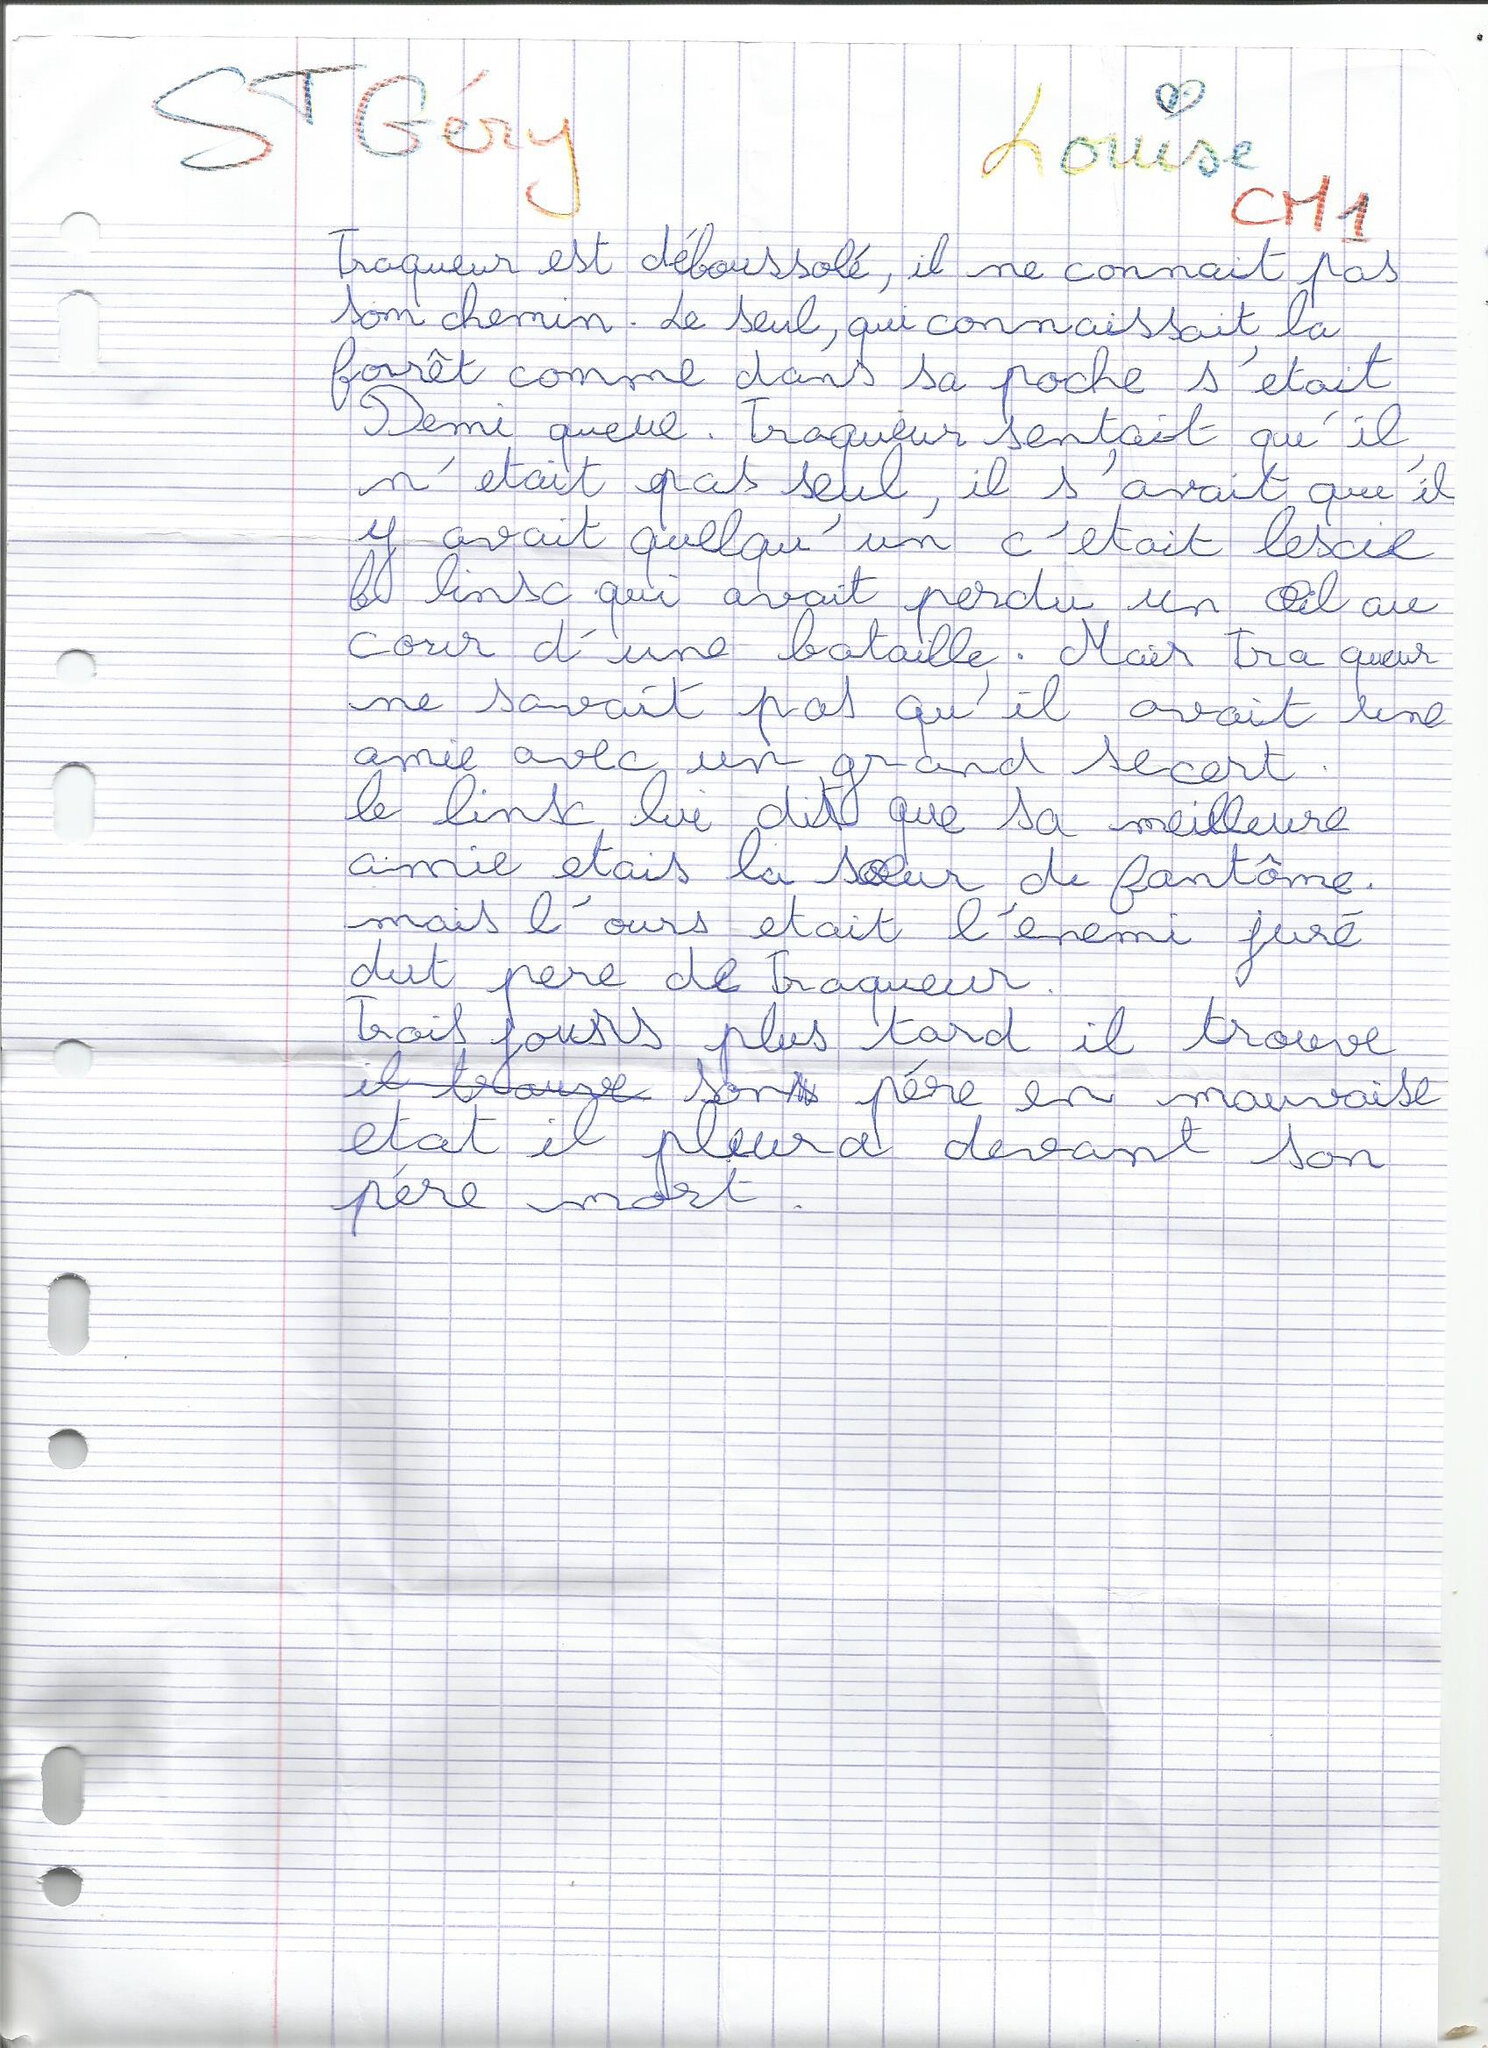 ST Géry
Louise
CM1
Traqueur est déboussolé, il ne connait pas
son chemin. Le seul, qui connaissait la
forêt comme dans sa poche s'etait
Demi queue. Traqueur sentait qu'il
n'etait pas seul, il s'avait qu'il
y avait quelqu'un c'etait
linx qui avait perdu un œil au
cour d'une bataille. Mais Traqueur
ne savait pas qu'il avait une
amie avec un grand secert.
le linx lui dit que sa meilleure
amie etais la sœur de fantôme.
mais l'ours etait l'enemi juré
dut pere de Traqueur.
Trois jours plus tard il trouve
il trouve son père en mauvaise
etat il pleura devant son
père mort.